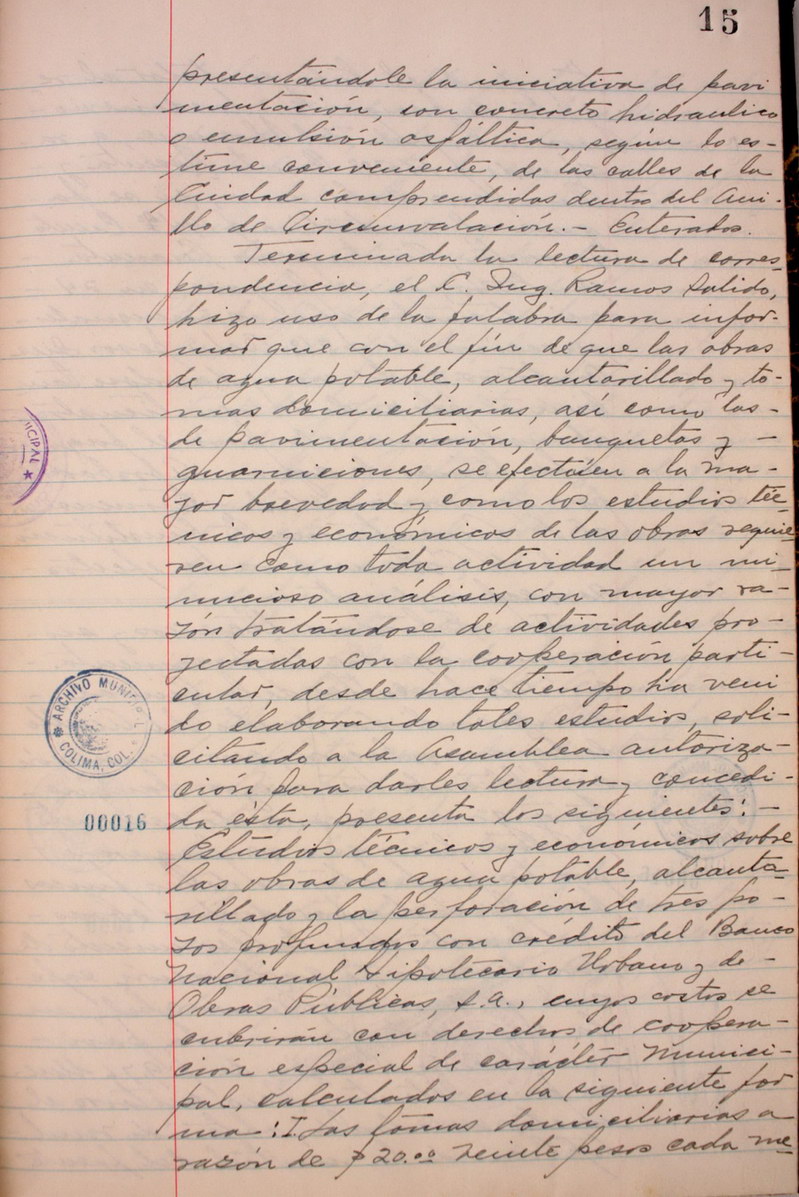 15
presentándole la iniciativa de pavi
mentación, con concreto hidraulico
o emulsión asfáltica, según lo es-
time conveniente, de las calles de la
Ciudad comprendidas dentro del Ani-
llo de Circunvalación.- Enterados.
Terminada la lectura de corres-
pondencia, el C. Ing. Ramos Salido,
hizo uso de la palabra para infor-
mar que con el fin de que las obras
de agua potable, alcantarillado y to-
mas domiciliarias, así como las-
de pavimentación, banquetas y -
guarniciones, se efectúen a la ma-
yor brevedad y como los estudios téc-
nicos y económicos de las obras requie-
ren como toda actividad un mi-
nucioso análisis, con mayor ra-
zón tratándose de actividades pro-
yectadas con la cooperación parti-
cular, desde hace tiempo ha veni
do elaborando tales estudios, soli-
citando a la Asamblea autoriza-
ción para darles lectura y concedi-
da ésta, presenta los siguientes:-
Estudios técnicos y económicos sobre
las obras de agua potable, alcanta-
rillado y la perforación de tres po-
zos profundos con crédito del Banco
Nacional Hipotecario Urbano y de-
Obras Públicas, S.A., cuyos costos se
cubrirán con derechos de coopera-
ción especial de carácter Munici-
pal, calculados en la siguiente for
ma: I. Las tomas domiciliarias a
razón de $20.00 veinte pesos cada me-
ICIPAL
ARCHIVO MUNICIPAL
COLIMA, COL.
00016